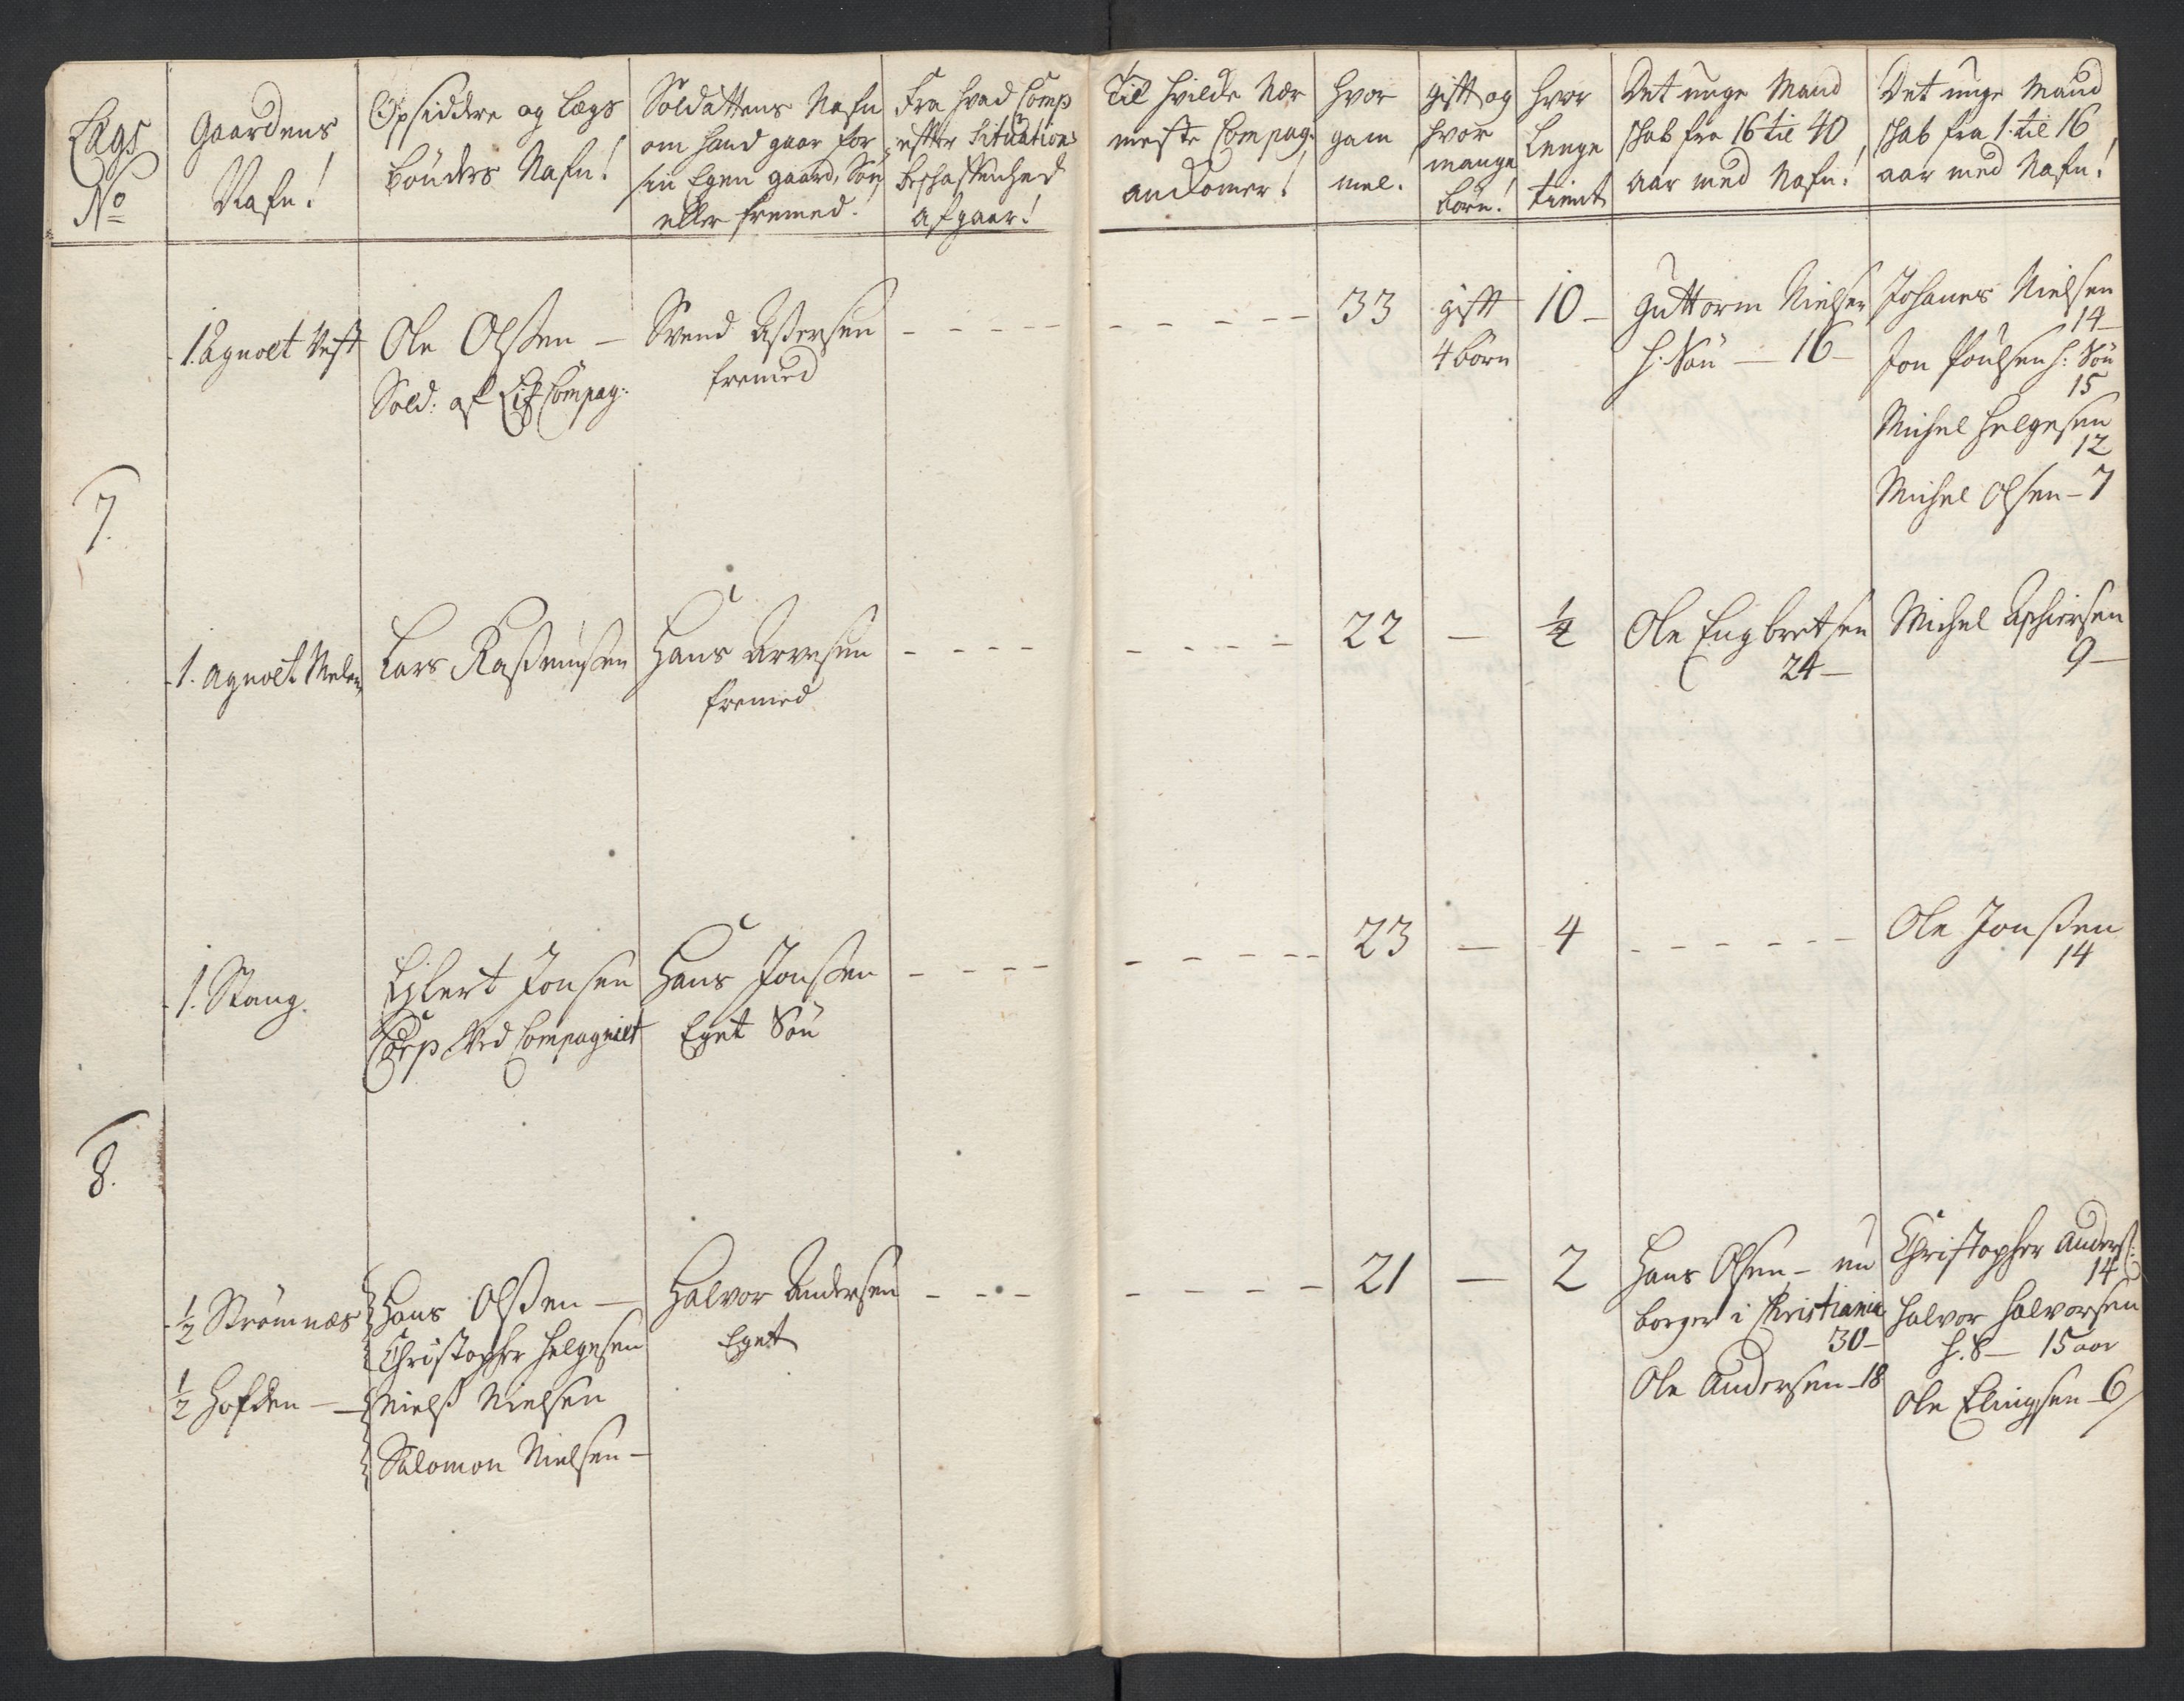 Lægs
No
Gaardens
Nafn!
Opsiddere og Lægs
bønders Nafn!
Soldattens Nafn
om hand gaar for
sin Egen gaard, Søn
eller fremed!
Fra hvad Comp
efter Situations
beschaffenhed
afgaar!
Til hvilke Nær
meste Compag:
ankomer!
hvor
gam
mel.
gift og
hvor
mange
børn!
hvor
Lenge
tient
Det unge Mand
skab fra 16 til 40
aar med Nafn!
Det unge Mand
skab fra 1. til 16
aar med Nafn!
7.
1. Agnoet Vest
Ole Olsen –
Sold: af Lif Compag:
Svend Assersen
fremed
33
gift
4 børn
10 –
Guttorm Nielsen
h: Søn – 16 –
Johanes Nielsen
14 –
Jon Poulsen h: Søn
15
Michel Helgesen
12
Michel Olsen – 7
1. Agnoet Melem
Lars Rasmussen
Hans Arvesen
fremed
22
–
½
Ole Engbretsen
24 –
Michel
9 –
8.
1. Stang.
Eilert Jonsen
Corp Ved Compagniet
Hans Jonsen
Eget Søn
23
–
4
Ole Jonsen
14
½ Strømnæs
½ Hofden –
Hans Olsen –
Christopher Helgesen
Niels Nielsen
Salomon Nielsen –
Halvor Andersen
Eget
21
–
2
Hans Olsen – nu
borger i Christiania
30 –
Ole Andersen – 18
Christopher Anders:
14
Halvor Halvorsen
h. S – 15 aar
Ole Elingsen – 6